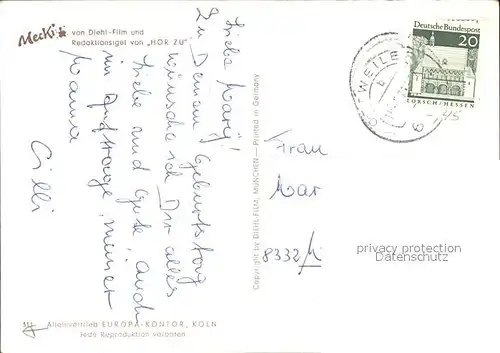 Mecki von Diehl-Film und
Redaktionsigel von „HÖR ZU"
Liebe Mary!
Zu Deinem Geburtstag
wünsche ich Dir alles
Liebe und Gute, auch
im Auftrage meiner
Mama
Cilli
Copyright by DIEHL-FILM, MÜNCHEN — Printed in Germany
Alleinvertrieb EUROPA-KONTOR, KÖLN
Jede Reproduktion verboten
WEILE
Deutsche Bundespost
20
LORSCH/HESSEN
Frau
Mar
8332
privacy protection
Datenschutz